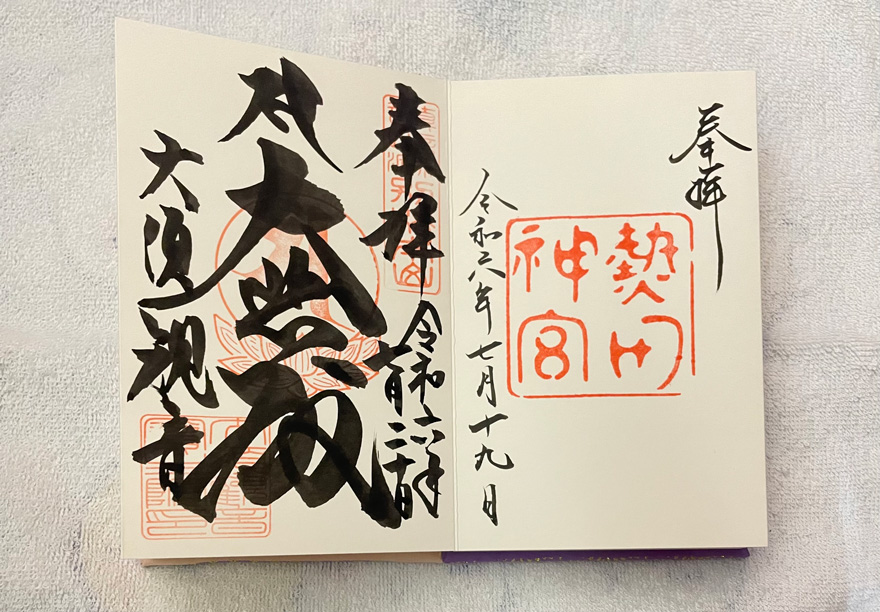 奉拝
熱田
神宮
令和六年七月十九日
奉拝
令和六年
七月二十日
大悲殿
大須観音